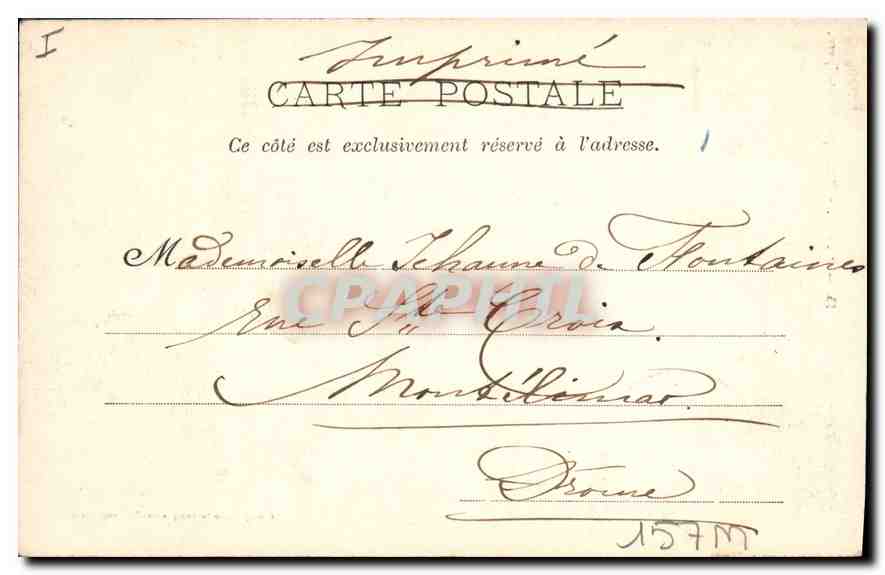 I
Imprimé
CARTE POSTALE
Ce côté est exclusivement réservé à l'adresse.
Mademoiselle Jehanne de Fontaines
Rue Ste Croix
CPAPHIL
Montélimar
Drôme
157M